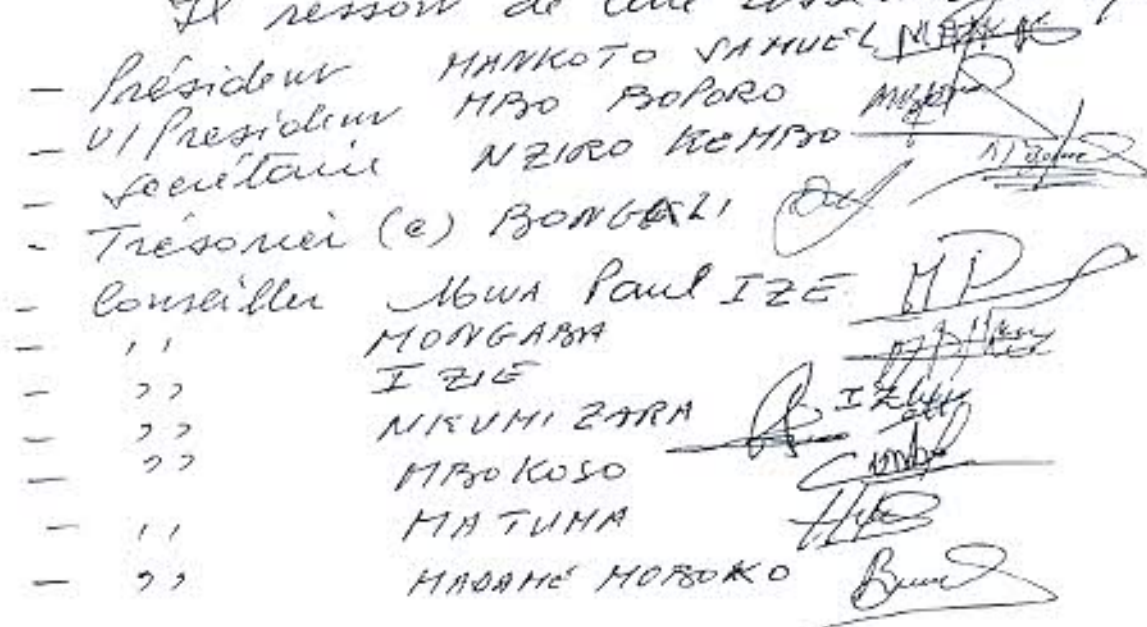 Il ressort de cette
- Président MANKOTO SAMUEL
- V/Président MBO BOPORO
- Secrétaire NZIRO KEMBO
- Trésorier (e) BONGELI
- Conseiller Mowa Paul IZE
- ,, MONGABA
- ,, IZIE
- ,, NKUMI ZARA
- ,, MBOKOSO
- ,, MATUMA
- ,, MADAME MOBOKO